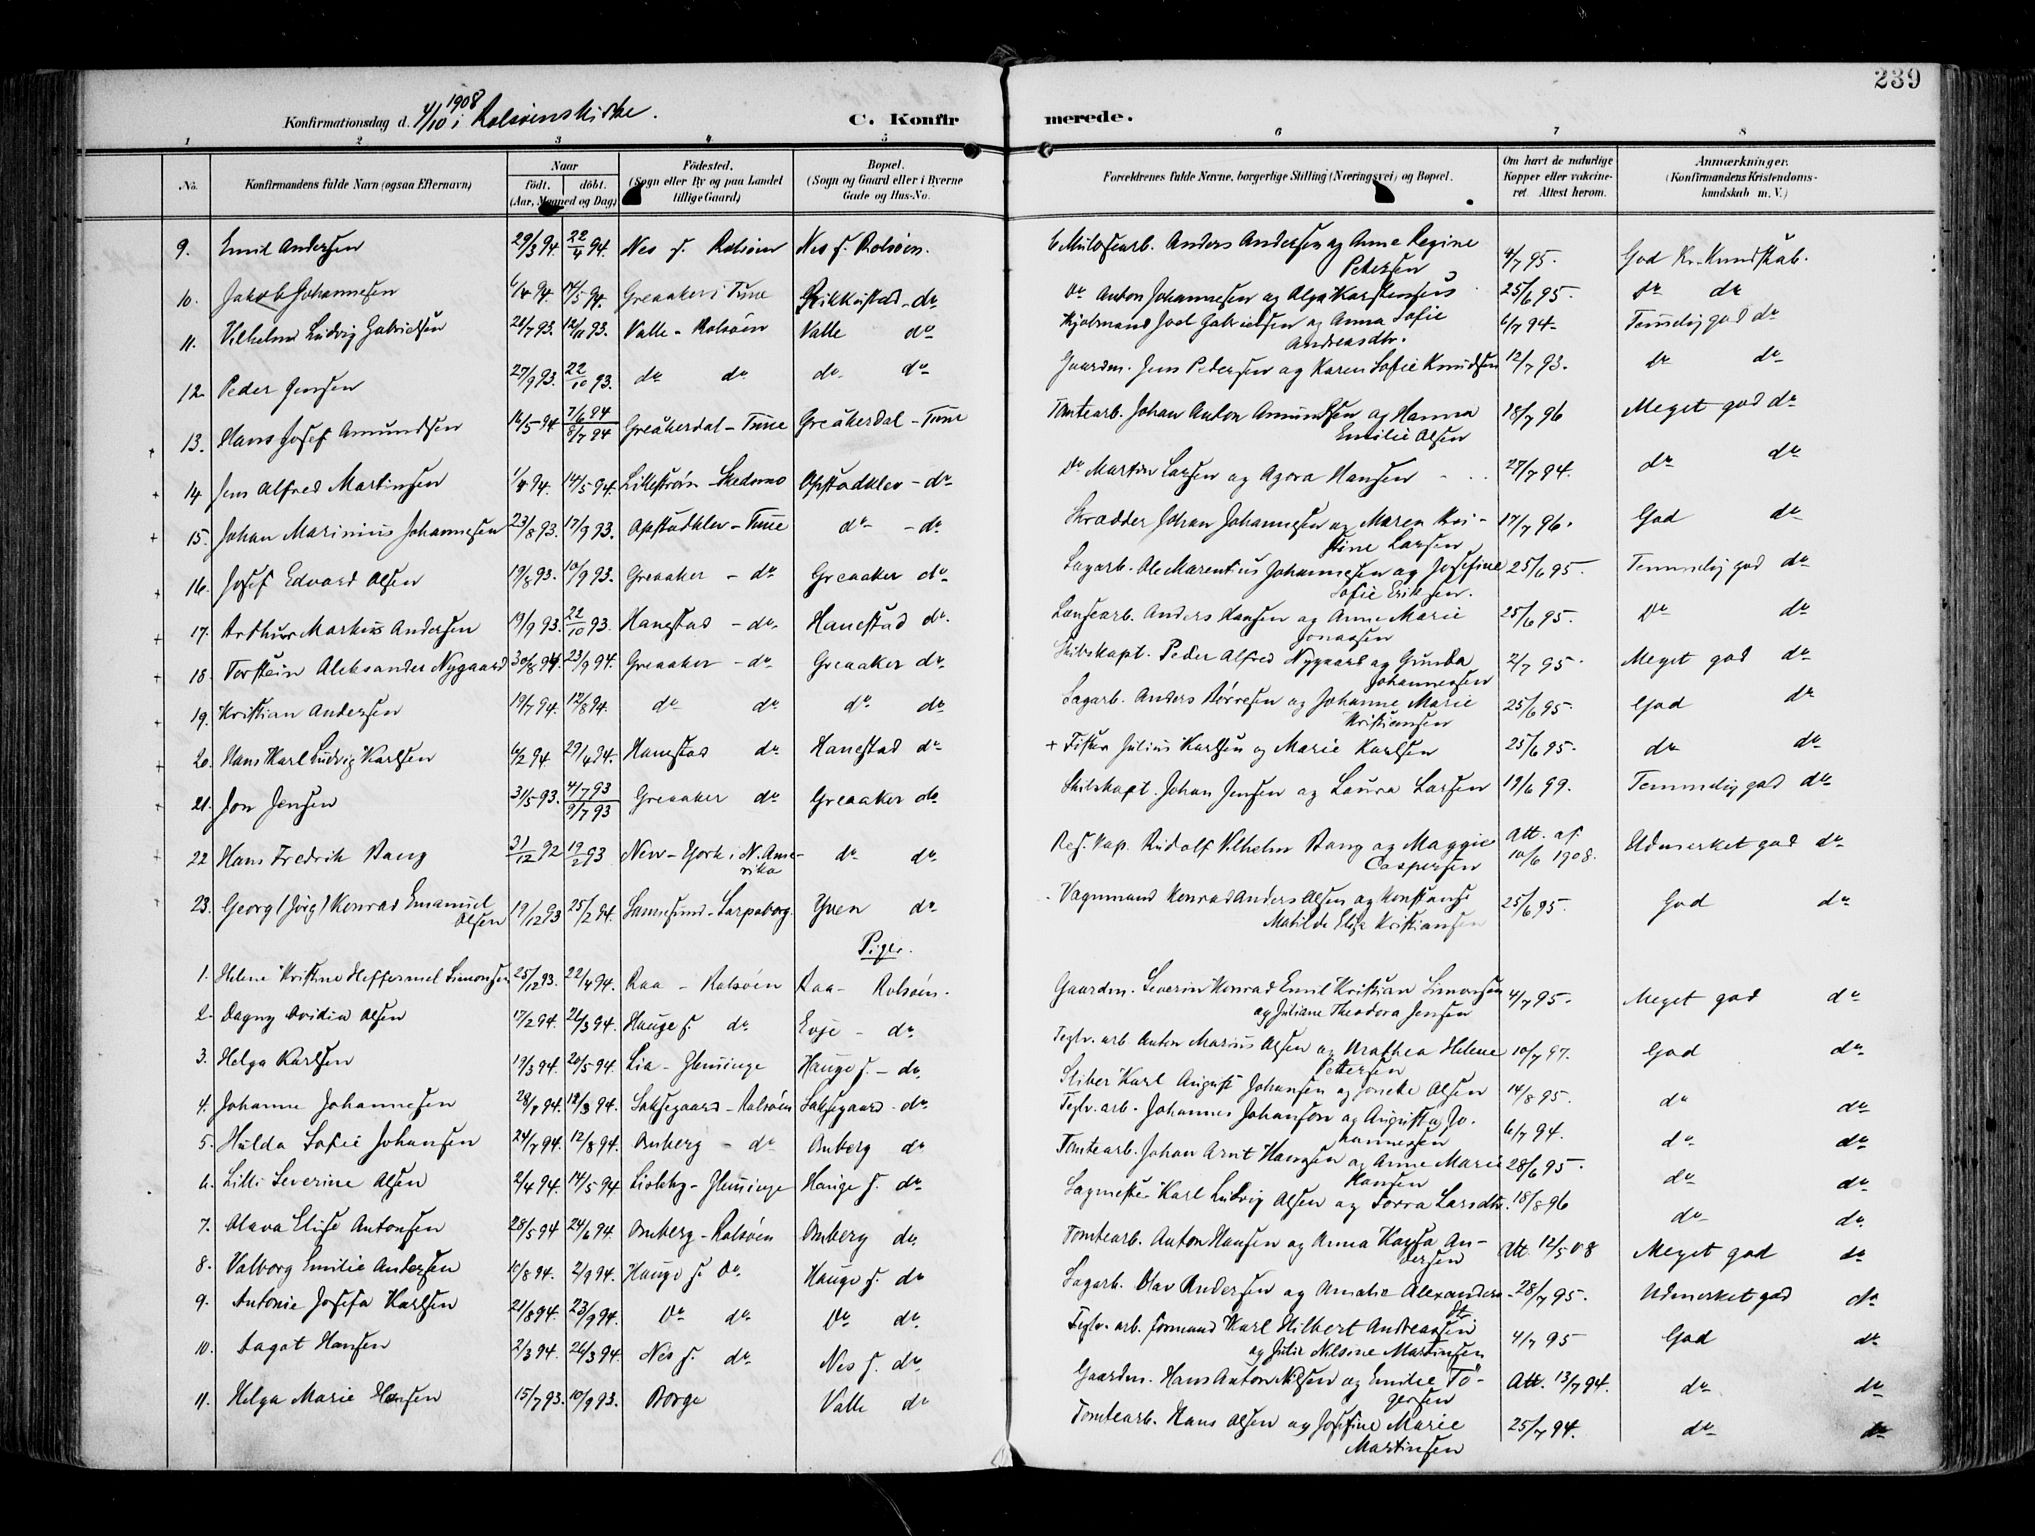 239
Konfirmationsdag d. 4/10 1908 i Rolsøenskirke.
C. Konfirmerede.
1 2 3 4 5 6 7 8
No.
Konfirmandens fulde Navn (ogsaa Efternavn)
Naar
födt. döbt.
(Aar, Maaned og Dag)
Födested.
(Sogn eller By og paa Landet
tillige Gaard)
Bopæl.
(Sogn og Gaard eller i Byerne
Gade og Hus-No.
Forældrenes fulde Navne, borgerlige Stilling (Næringsvei) og Bopæl.
Om havt de naturlige
Kopper eller vakcine-
ret. Attest herom.
Anmærkninger.
(Konfirmandens Kristendoms-
kundskab m. V.)
9. Emil Andersen 29/3 94. 22/4 94. Nes s. Rolsøen Nes s. Rolsøen. Anders Andersen og Anne Regine Petersen 4/7 95. God Kr. Kundskab.
10. Jakob Johannesen 6/4 94. 14/5 94. Greaaker i Tune Rikkestad - do do Anton Johannesen og Olga Karstensens 25/6 95. do do
11. Vilhelm Ludvig Gabrielsen 21/7 93. 12/11 93. Valle - Rolsøen Valle do Hjulmand Joel Gabrielsen og Anna Sofie Andreasdtr. 6/7 94 Temmelig god do
12. Peder Jensen 27/9 93. 22/10 93. do do do do Gaardm. Jens Pedersen og Karen Sofie Knudsen 12/7 93. do do
13. Hans Josef Amundsen 16/5 94 7/6 94 8/7 94 Greåkerdal - Tune Greåkerdal - Tune Tomtearb. Johan Anton Amundsen og Hanna Emilie Olsen 18/7 96 Meget god do
14 Jens Alfred Martinsen 1/4 94. 14/5 94. Lillestrøm - Skedsmo Opstadklev - do do Martin Larsen og Agora Hansen 27/7 94. do do
15. Johan Marinius Johannesen 23/8 93. 17/9 93. Opstadklev - Tune do - do Skrædder Johan Johannesen og Maren Kristine Larsen 17/7 96. God do
16. Josef Edvard Olsen 19/8 93. 10/9 93. Greaaker - do Greaaker do Sagarb. Ole Marentius Johannesen og Josefine Sofie Eriksen. 25/6 95. Temmelig god do
17. Arthur Markus Andersen 19/9 93. 22/10 93. Hanestad - do. Hanestad do. Lænsearb. Anders Hansen og Anne Marie Jonassen 25/6 95. Do do
18. Torstein Aleksander Nygaard 30/8 94 23/9 94. Greaaker - do. Greaaker do. Skibskapt. Peder Alfred Nygaard og Gunda Johannesen 2/7 95. Meget god do
19. Kristian Andersen 19/7 94. 12/8 94. do do do do Sagarb. Anders Børresen og Johanne Marie Kristiansen 25/6 95. God do
20. Hans Karl Ludvig Karlsen 6/2 94 29/4 94. Hanestad do Hanestad do + Fisker Julius Karlsen og Marie Karlsen 25/6 95. do do
21. Jon Jensen 31/5 93. 4/7 93 9/7 93 Greaaker do Greaaker do Skibskapt. Johan Jensen og Laura Larsen 19/6 99. Temmelig god do
22 Hans Fredrik Bang 31/12 92 19/2 93 New-York i N. Amerika do do Ref. kap. Rudolf Vilhelm Bang og Maggie Caspersen Att. af 10/6 1908. Udmerket god do
23. Georg (Jörg) Konrad Emanuel Olsen 19/12 93 25/2 94. Sannesund - Sarpsborg. Yven do Vognmand Konrad Anders Olsen og Konstanse Matilde Elise Kristiansen 25/6 95. God do
Piger.
1. Helene Kristine Heffermel Simonsen 25/12 93. 22/4 94. Raa - Rolsøen Raa - Rolsøen. Gaardm. Severin Konrad Emil Kristian Simonsen og Juliane Theodora Jensen 4/7 95. Meget god do
2. Dagny Ovidia Olsen 17/2 94. 26/3 94. Hauge s. do Evje - do. Teglv. arb. Anton Marius Olsen og Mathea Helene Pettersen 10/7 97. God do
3. Helga Karlsen 19/3 94. 20/5 94. Lia - Glemminge Hauge s. - do. Sliber Karl August Johansen og Jonette Olsen 14/8 95. do do
4. Johanne Johannesen 28/1 94. 18/3 94. Saksegaard - Rolsøen Saksegaard - do Teglv. arb. Johannes Johanson og Augusta Johannesen 6/7 94. do do
5. Hulda Sofie Johansen 24/7 94. 12/8 94. Omberg - do Omberg do Tomtearb. Johan Arnt Hansen og Anne Marie Hansen 28/6 95. do do
6. Lilli Severine Olsen 2/4 94. 14/5 94 Lisleby - Glemminge Hauge s. do Sagmester Karl Ludvig Olsen og Torra Larsdtr. 18/8 96 do do
7. Olava Elise Antonsen 28/5 94 24/6 94. Omberg - Rolsøen Omberg do. Tomtearb. Anton Hansen og Anna Kaysa Andersen Att. 12/5 08 Meget god do
8. Valborg Emilie Andersen 10/8 94. 2/9 94. Hauge s. Do. Hauge s. do Sagarb. Olav Andersen og Amalie Alexandersdtr 28/7 95. Udmerket god do
9. Antonie Josefa Karlsen 21/8 94. 23/9 94. Do do Do do. Teglv. arb. formand Karl Hilbert Andreassen og Julie Nilsine Martinsen 4/7 95 God do
10. Aagot Hansen 2/3 94. 26/3 94. Nes s. do Nes s. do Gaardm. Hans Anton Nilsen og Emilie Tögersen Att. 13/7 94. do do
11. Helga Marie Hansen 15/7 93. 10/9 93. Borge Valle do Tomtearb. Hans Olsen og Josefine Marie Martinsen 25/7 94. do do